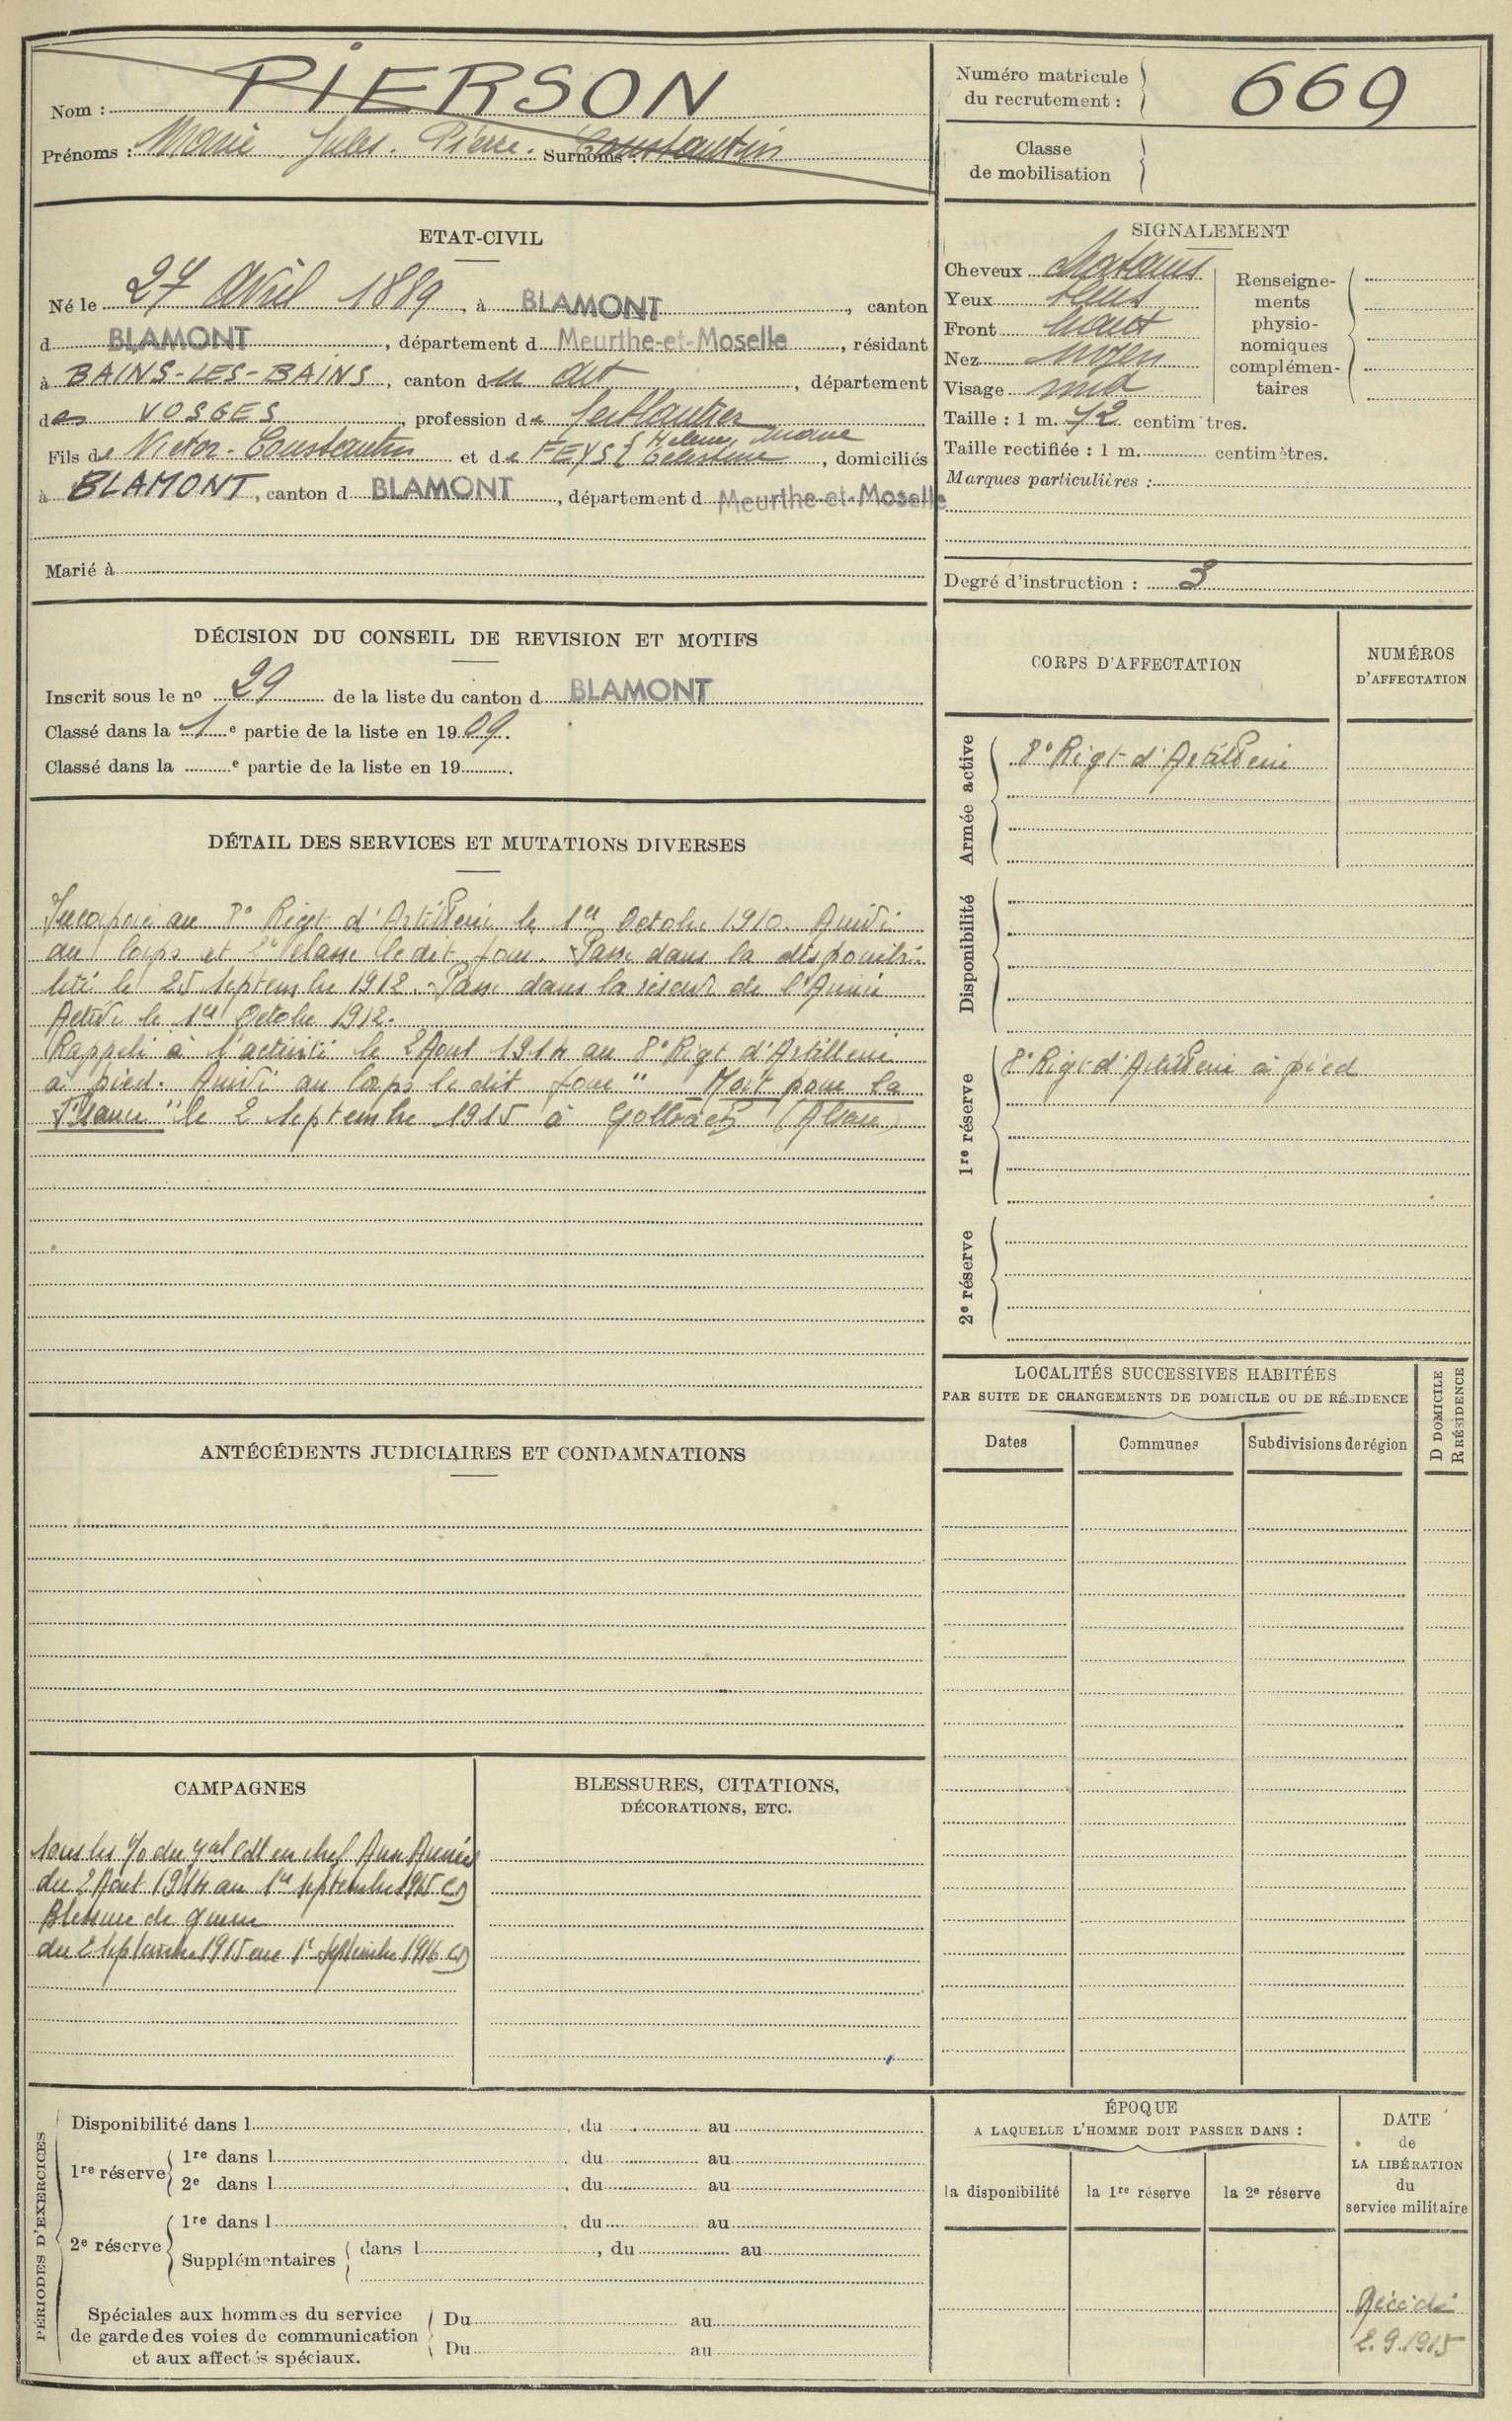 Nom : PIERSON
Prénoms : Marie Jules. Pierre. Surnoms : Constantin
Numéro matricule
du recrutement :
669
Classe
de mobilisation
ETAT-CIVIL
Né le 27 Avril 1889, à BLAMONT, canton
d BLAMONT, département d Meurthe-et-Moselle, résidant
à BAINS-LES-BAINS, canton du dit, département
des VOSGES, profession de ferblantier
Fils de Victor-Constantin et de FEYS { Hélène, Marie Célestine, domiciliés
à BLAMONT, canton d BLAMONT, département d Meurthe-et-Moselle
Marié à
SIGNALEMENT
Cheveux chatains
Yeux
Front haut
Nez moyen
Visage
Taille : 1 m. 72 centimètres.
Taille rectifiée : 1 m. centimètres.
Marques particulières :
Renseigne-
ments
physio-
nomiques
complémen-
taires
Degré d'instruction : 3
DÉCISION DU CONSEIL DE REVISION ET MOTIFS
Inscrit sous le nº 29 de la liste du canton d BLAMONT
Classé dans la 1e partie de la liste en 1909.
Classé dans la e partie de la liste en 19 .
CORPS D'AFFECTATION
NUMÉROS
D'AFFECTATION
Armée active
8e Rigt d'Artillerie
Disponibilité
1re réserve
8e Rigt d'Artillerie à pied
2e réserve
DÉTAIL DES SERVICES ET MUTATIONS DIVERSES
Incorporé au 8e Rigt d'Artillerie le 1er Octobre 1910. Arrivé
au Corps et 2e classe ledit jour. Passé dans la disponibi-
lité le 25 Septembre 1912. Passé dans la réserve de l'Armée
Active le 1er Octobre 1912.
Rappelé à l'activité le 2 Aout 1914 au 8e Rigt d'Artillerie
à pied. Arrivé au Corps le dit jour "Mort pour la
France" le 2 Septembre 1915 à Golbach (Alsace)
ANTÉCÉDENTS JUDICIAIRES ET CONDAMNATIONS
LOCALITÉS SUCCESSIVES HABITÉES
PAR SUITE DE CHANGEMENTS DE DOMICILE OU DE RÉSIDENCE
D DOMICILE
R RÉSIDENCE
Dates
Communes
Subdivisions de région
CAMPAGNES
Sous les o/o du Gal Cdt en chef Aux Armées
du 2 Aout 1914 au 1er Septembre 1915 CD
Blessure de guerre
du 2 Septembre 1915 au 1er Septembre 1916 CD
BLESSURES, CITATIONS,
DÉCORATIONS, ETC.
PÉRIODES D'EXERCICES
Disponibilité dans l , du au
1re réserve
1re dans l , du au
2e dans l , du au
2e réserve
1re dans l , du au
Supplémentaires { dans l , du au
Spéciales aux hommes du service
de garde des voies de communication
et aux affectés spéciaux.
Du au
Du au
ÉPOQUE
A LAQUELLE L'HOMME DOIT PASSER DANS :
la disponibilité
la 1re réserve
la 2e réserve
DATE
de
LA LIBÉRATION
du
service militaire
Décédé
2.9.1915